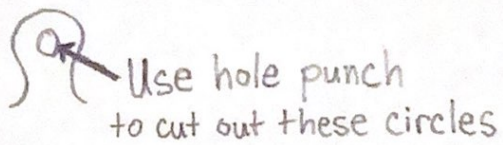 Use hole punch
to cut out these circles